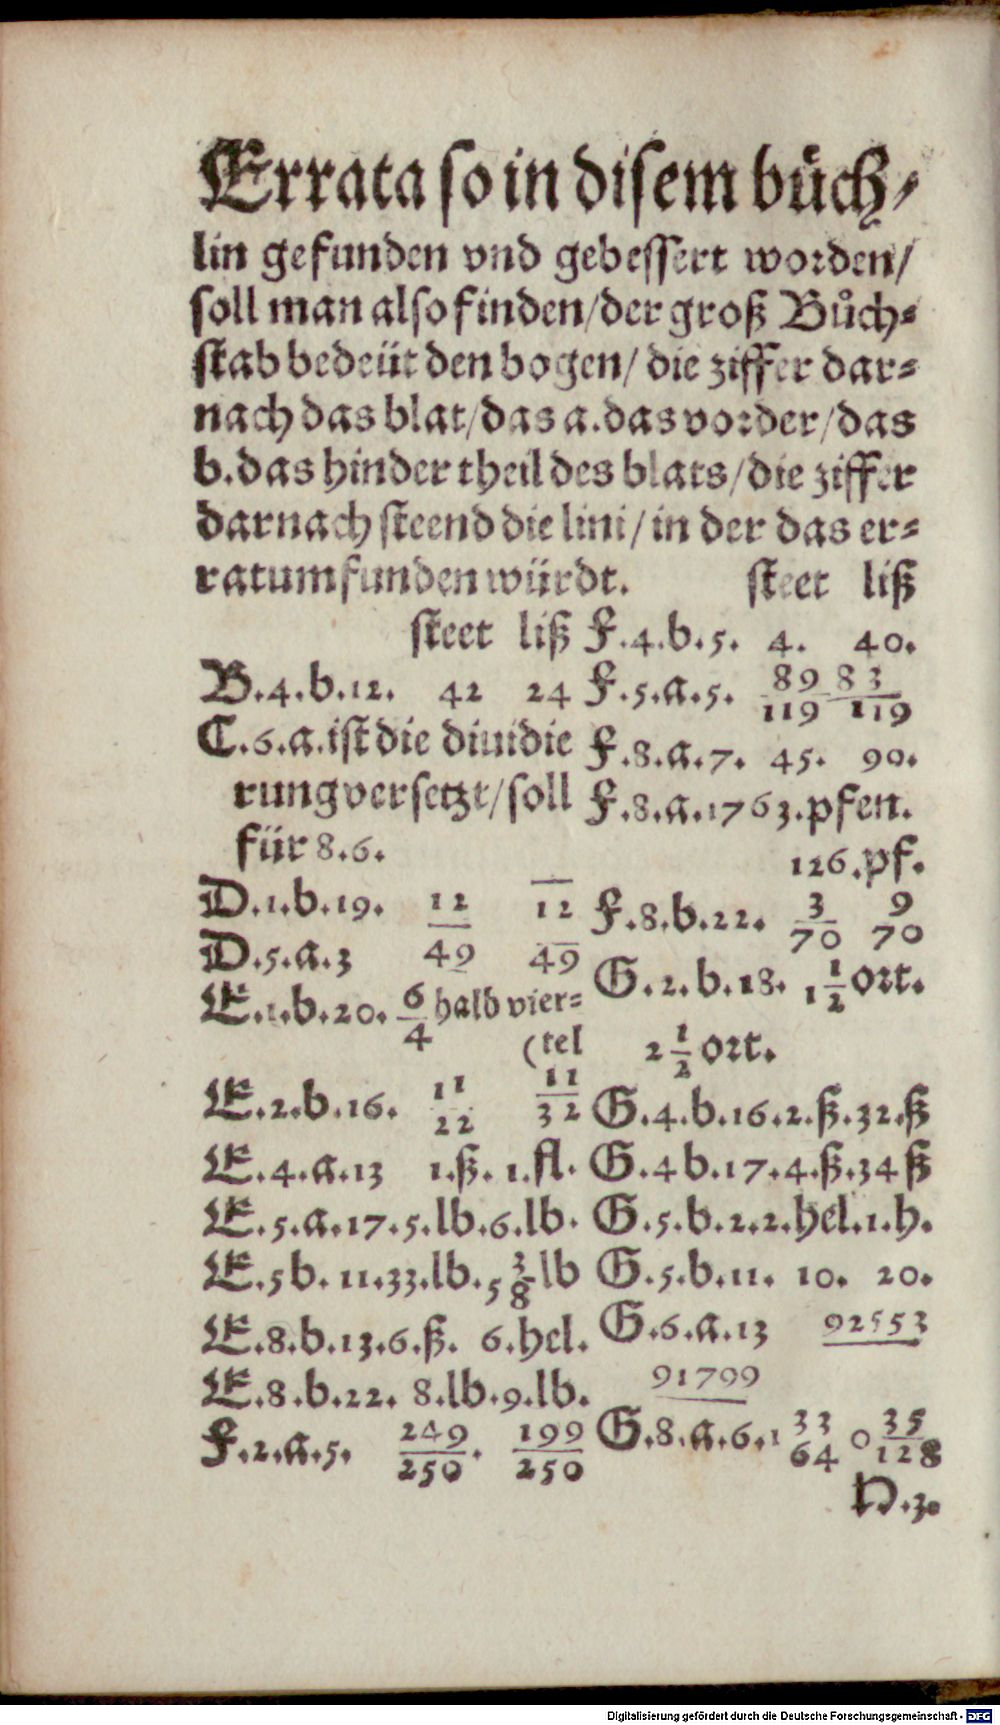 Errata so in disem bůch⸗
lin gefunden vnd gebessert worden/
soll man also finden/der groß Bůch⸗
stab bedeüt den bogen/ die ziffer dar⸗
nach das blat/das a.das vorder/das
b.das hinder theil des blats/die ziffer
darnach steend die lini/in der das er⸗
ratum funden würdt.
steet liß
B.4.b.12. 42 24
C.6.a.ist die diuidie
rung versetzt/soll
für 8.6.
D.1.b.19. 12 12
D.5.a.3 49 49
E.1.b.20. 6/4 halb vier⸗
(tel
E.2.b.16. 11/22 11/32
E.4.a.13 1.ß. 1.fl.
E.5.a.17.5.lb.6.lb.
E.5b. 11.33.lb.5 3/8 lb
E.8.b.13.6.ß. 6.hel.
E.8.b.22. 8.lb.9.lb.
F.2.a.5. 249/250. 199/250
steet liß
F.4.b.5. 4. 40.
F.5.a.5. 89/119 83/119
F.8.a.7. 45. 90.
F.8.a.1763.pfen.
126.pf.
F.8.b.22. 3/70 9/70
G.2.b.18. 1 1/2 ort.
2 1/2 ort.
G.4.b.16.2.ß.32.ß
G.4b.17.4.ß.34ß
G.5.b.2.2.hel.1.h.
G.5.b.11. 10. 20.
G.6.a.13 92553
91799
G.8.a.6.1 33/64 0 35/128
H.3.
Digitalisierung gefördert durch die Deutsche Forschungsgemeinschaft - DFG